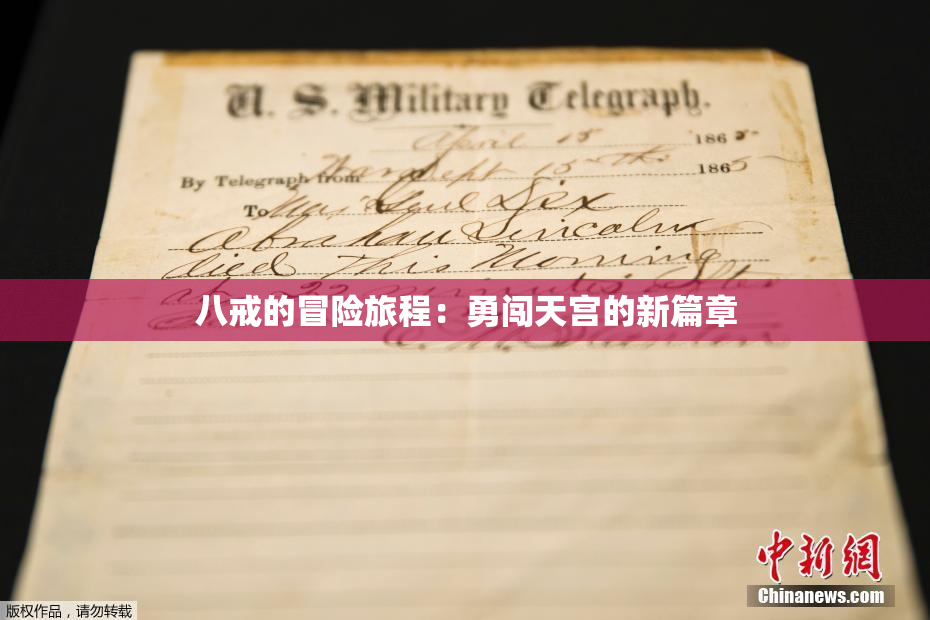 U. S. Military Telegraph.
April 15 1865
By Telegraph from War Dept 15th 1865
To Maj Genl Dix
Abraham Lincoln
died This Morning
at 22 minutes after
八戒的冒险旅程：勇闯天宫的新篇章
E. M. Stanton
中新网
Chinanews.com
版权作品，请勿转载